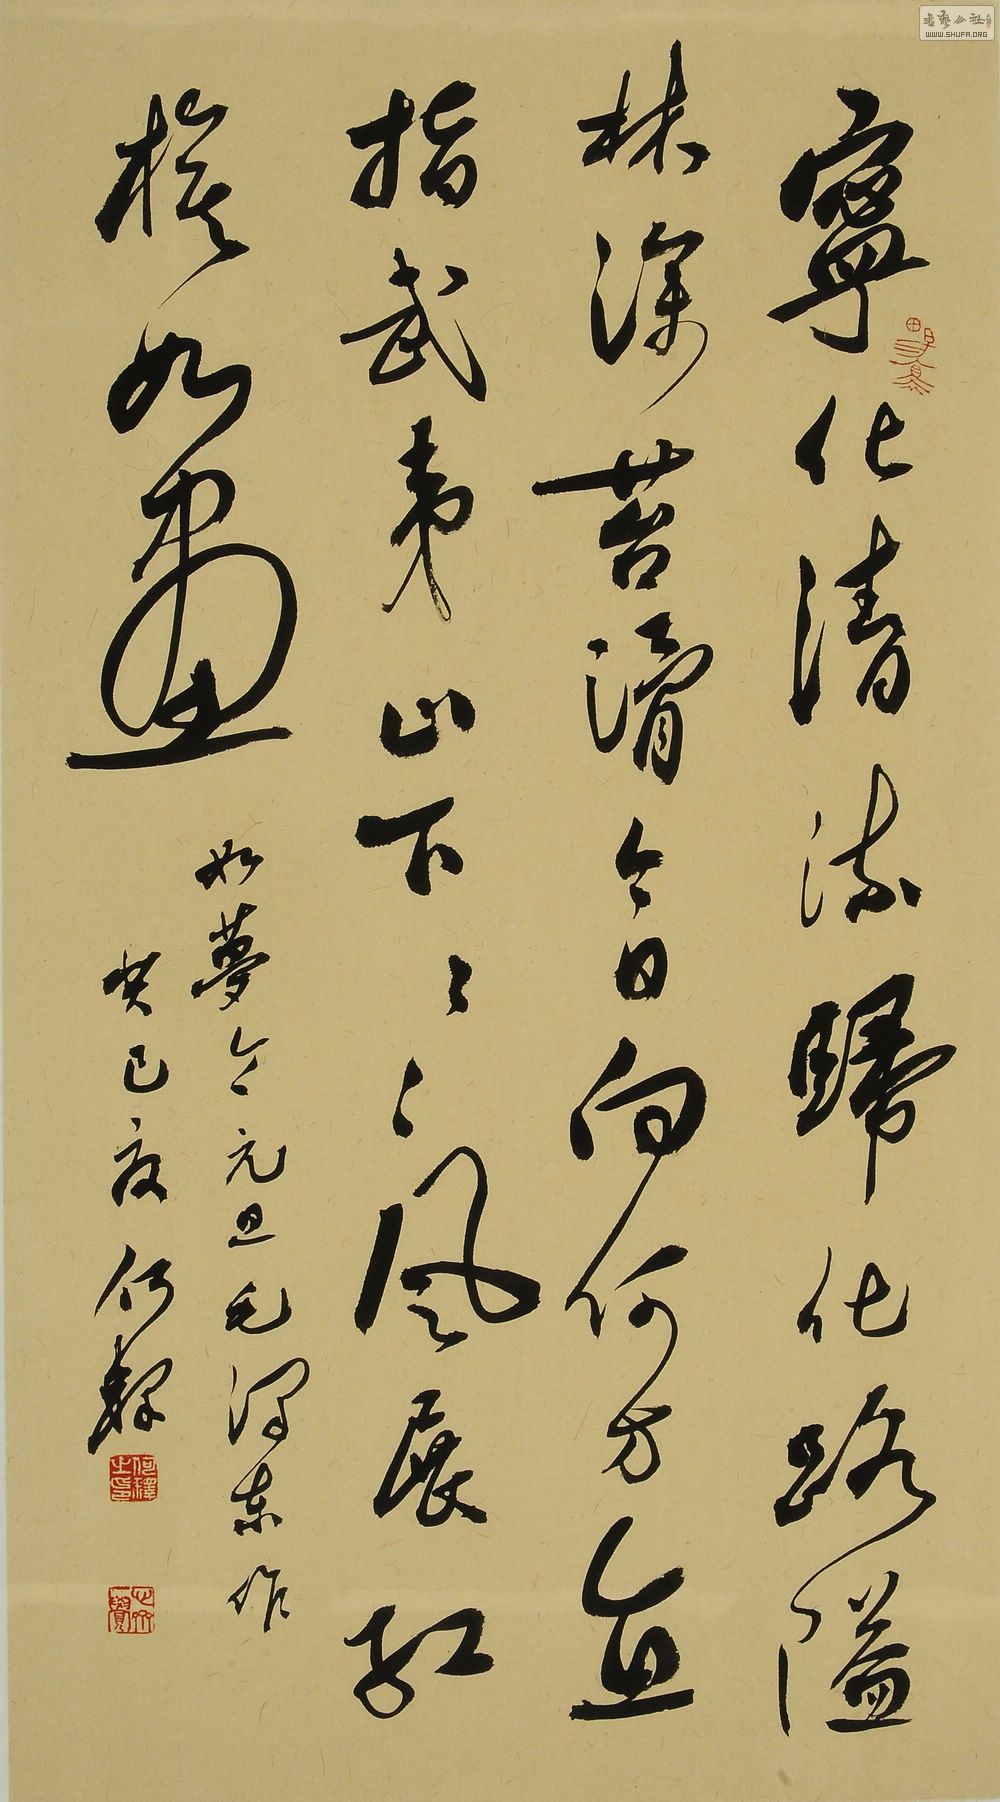 寧化清流歸化路隘
林深苔滑今日向何方直
指武夷山下〻〻〻〻風展紅
旗如畫
如夢令元旦毛澤東作
癸巳夏何
書藝公社
WWW.SHUFA.ORG